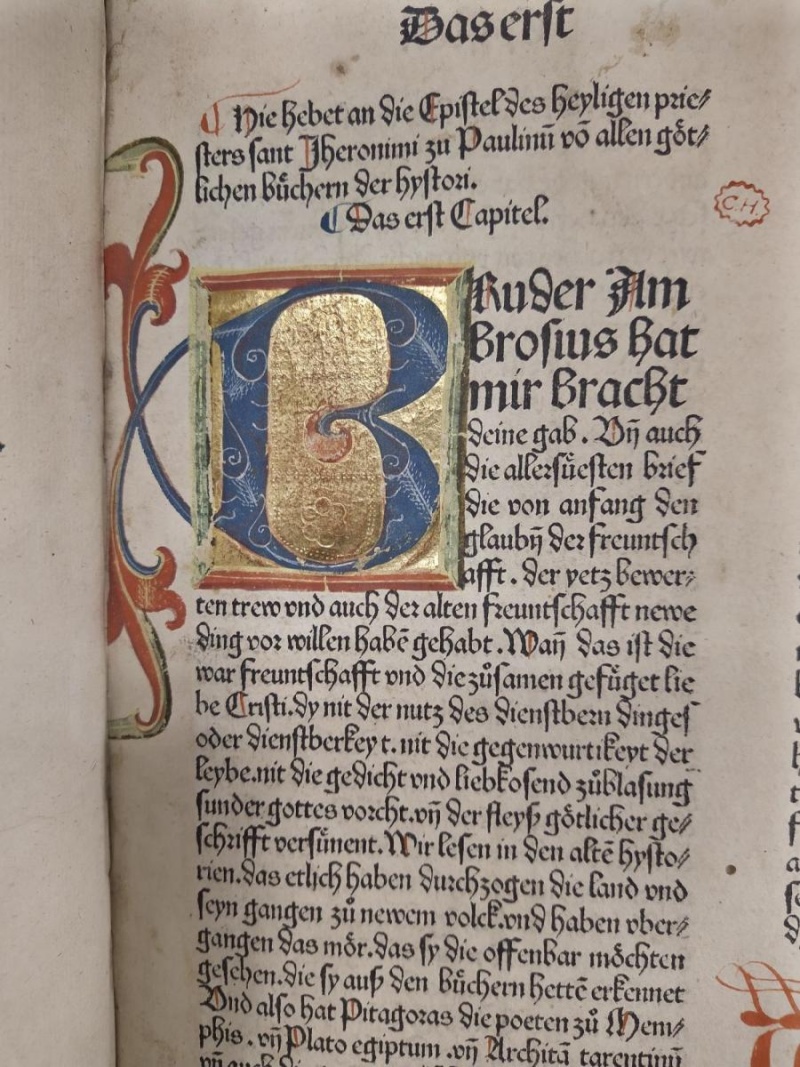 Das erst
Hie hebet an die Epistel des heyligen prie⸗
sters sant Jheronimi zu Paulinū vō allen göt⸗
lichen bůchern der hystori.
Das erst Capitel.
C.H.
BRuder Am
brosius hat
mir bracht
deine gab. Vn̄ auch
die allersüesten brief
die von anfang den
glaubn̄ der freuntsch
afft. der yetz bewer⸗
ten trew vnd auch der alten freuntschafft newe
ding vor willen habē gehabt. Wan̄ das ist die
war freuntschafft vnd die zůsamen gefüget lie
be Cristi. dy nit der nutz des dienstbern dinges
oder dienstberkeyt. nit die gegenwurtikeyt der
leybe. nit die gedicht vnd liebkosend zůblasung
sunder gottes vorcht. vn̄ der fleyß götlicher ge⸗
schrifft versünent. Wir lesen in den altē hysto⸗
rien. das etlich haben durchzogen die land vnd
seyn gangen zů newem volck. vnd haben vber⸗
gangen das mör. das sy die offenbar möchten
gesehen. die sy auß den büchern hettē erkennet
Vnd also hat Pitagoras die poeten zů Mem⸗
phis. vn̄ Plato egiptum. vn̄ Architā tarentinū
vn̄ auch